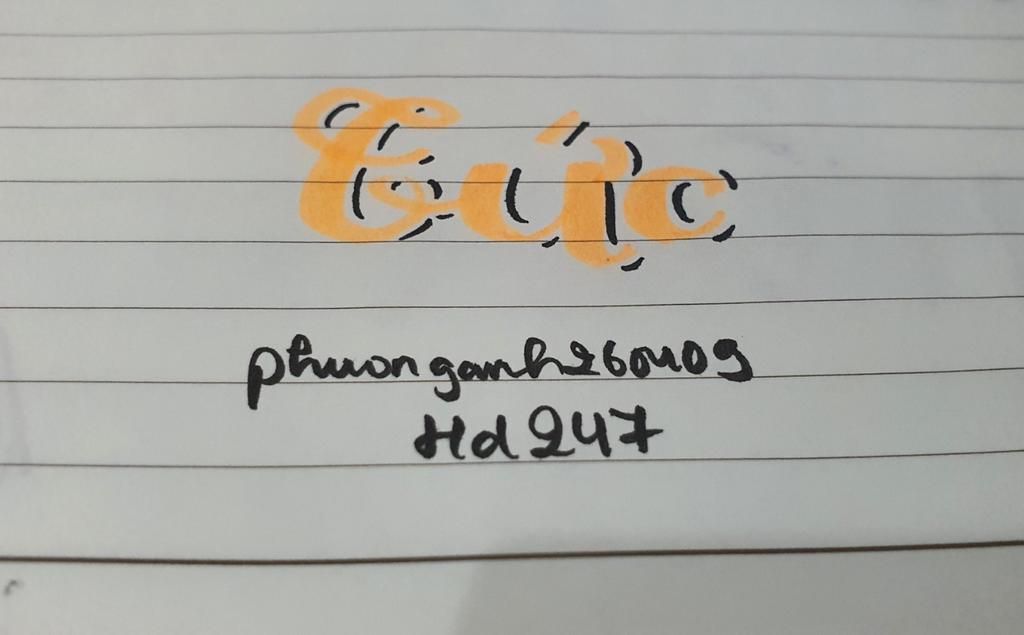 Tức
phuonganh260409
Hd247